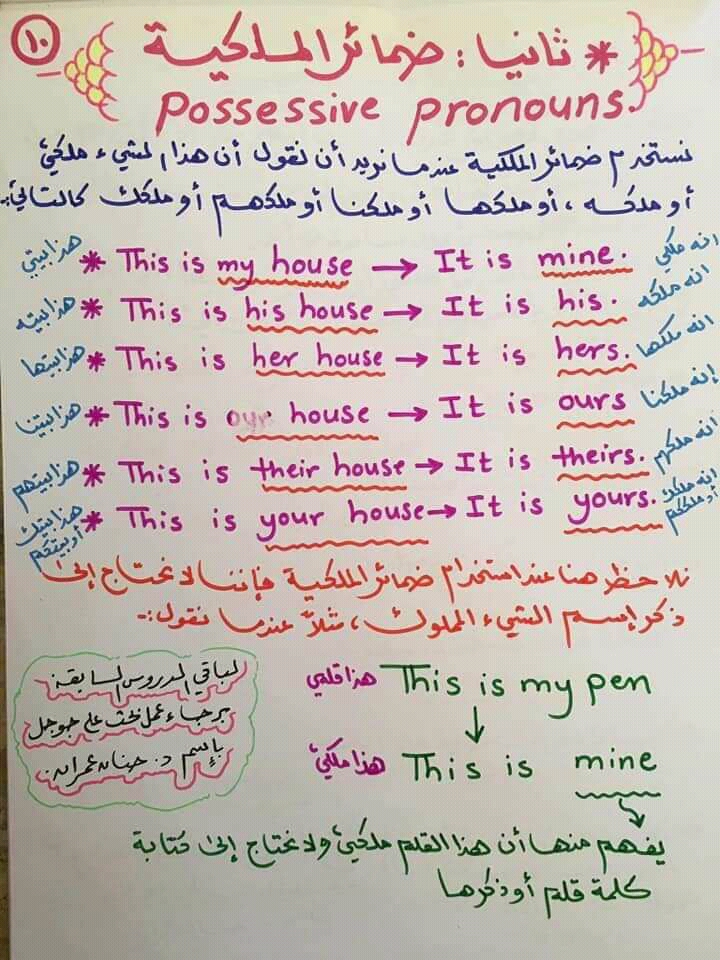 ١٠
* ثانيا : ضمائر الملكية
Possessive pronouns.
نستخدم ضمائر الملكية عندما نريد أن نقول أن هذا الشيء ملكي
أو ملكه ، أو ملكها أو ملكنا أو ملكهم أو ملكك كالتالي:-
هذا بيتي * This is my house → It is mine. انه ملكي
هذا بيته * This is his house → It is his. انه ملكه
هذا بيتها * This is her house → It is hers. انه ملكها
هذا بيتنا * This is our house → It is ours إنه ملكنا
هذا بيتهم * This is their house → It is theirs. انه ملكهم
هذا بيتك أو بيتكم * This is your house → It is yours. انه ملكك أو ملككم
نلاحظ هنا عند استخدام ضمائر الملكية فإننا لا نحتاج إلى
ذكر إسم الشيء المملوك ، مثلاً عندما نقول:-
هذا قلمي This is my pen
↓
هذا ملكي This is mine
لباقي الدروس السابقة
برجاء عمل بحث على جوجل
بإسم د. حنان عمران.
يفهم منها أن هذا القلم ملكي ولا نحتاج إلى كتابة
كلمة قلم أو ذكرها